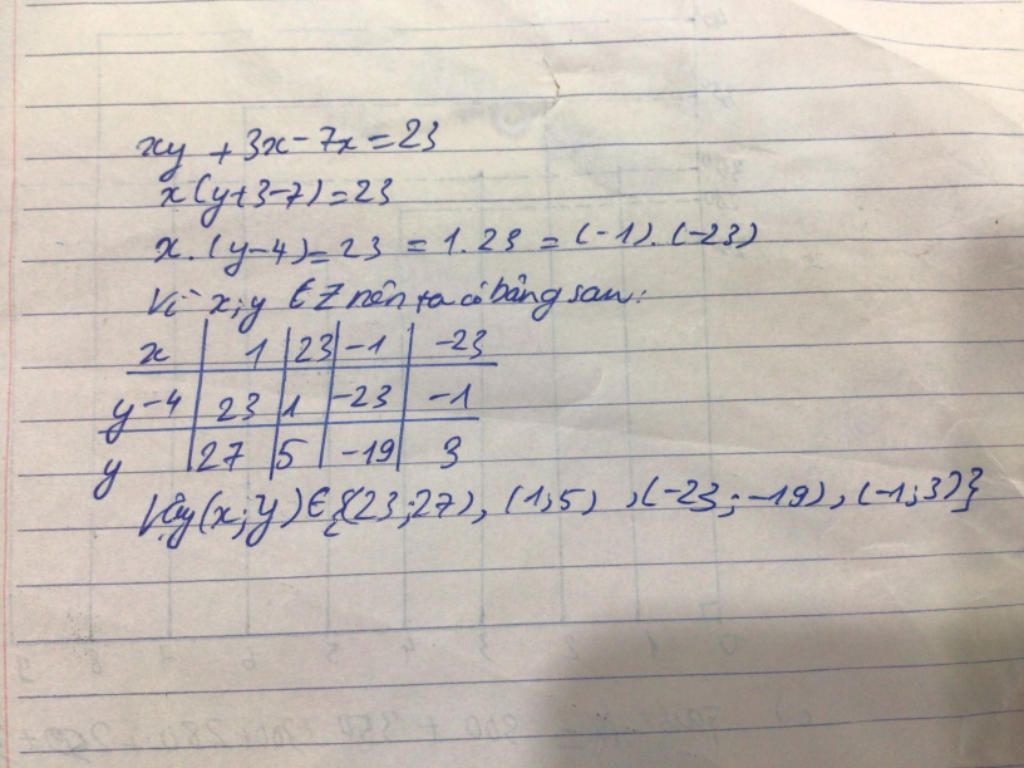 xy + 3x - 7x = 23
x(y+3-7) = 23
x.(y-4) = 23 = 1.23 = (-1).(-23)
Vì x;y ∈ Z nên ta có bảng sau:
x | 1 | 23 | -1 | -23
y-4 | 23 | 1 | -23 | -1
y | 27 | 5 | -19 | 3
Vậy (x;y) ∈ {(23;27), (1;5), (-23;-19), (-1;3)}